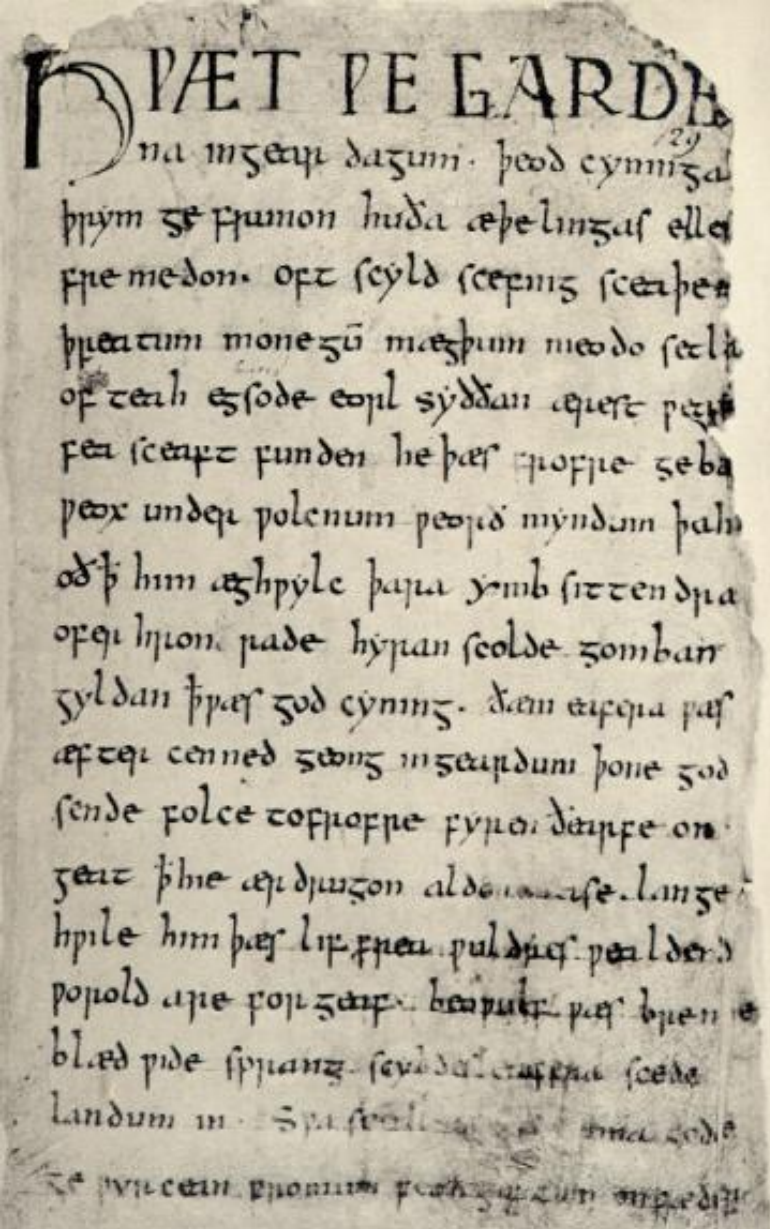 HǷÆT ǷE GARDE
na ingear dagum. þeod cyninga
þrym ge frunon huða æþelingas elle
fre medon. oft scyld scefing sceaþe
þreatum monegū mægþum meodo setla
of teah egsode eorl syððan ærest ƿear
fea sceaft funden he þæs frofre geba
ƿeox under ƿolcnum ƿeorð myndum þah
oð ꝥ him æghƿylc þara ymb sittendra
ofer hron rade hyran scolde gomban
gyldan ꝥ ƿæs god cyning. ðæm eafera ƿæs
æfter cenned geong ingeardum þone god
sende folce tofrofre fyren ðearfe on
geat ꝥ hie ær drugon aldor ase. lange
hƿile him þæs lif frea ƿuldres ƿealdend
ƿorold are for geaf. beoƿulf ƿæs breme
blæd ƿide sprang scyldes eafera scede
landum in. Sƿa gode
ge ƿyrcean fromum feoh giftum